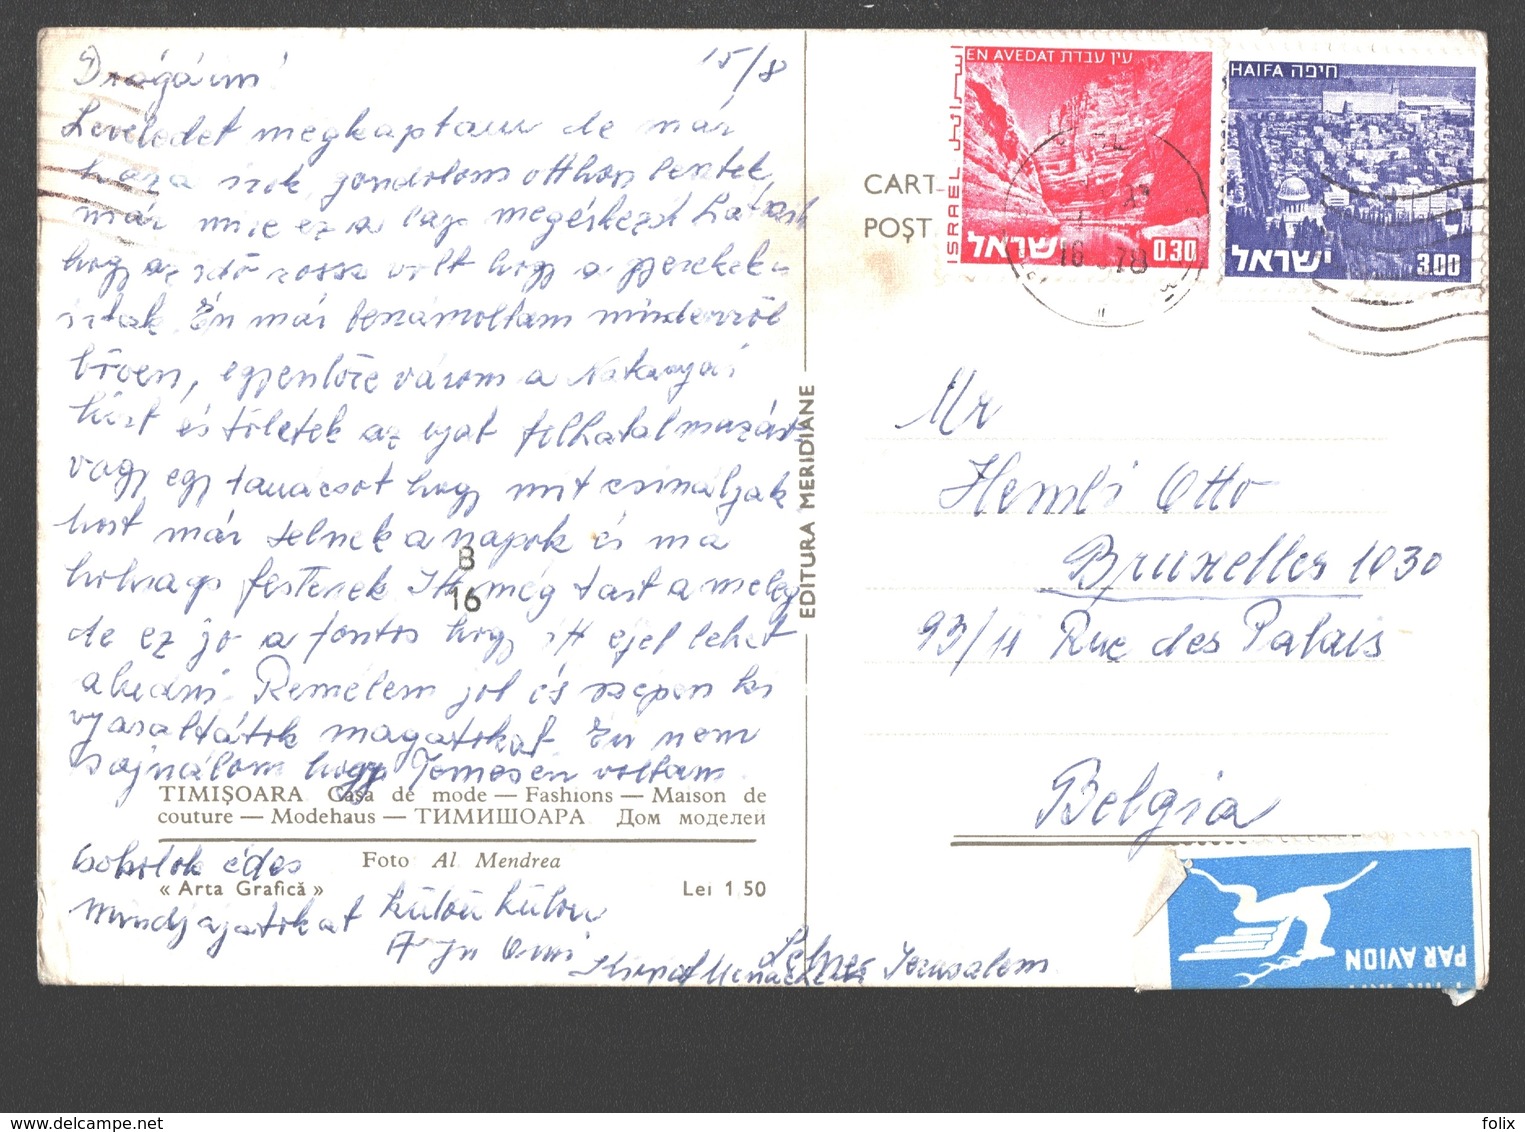 Drágáim! 15/8
Leveledet megkaptam de már
haza írok, gondolom otthon lesztek
már mire ez a lap megérkezik
hogy az idő rossz volt hogy a gyerekek
Én már beszámoltam mindenről
bőven, egyenlőre várom a
hírt és tőletek az felhatalmazást
vagy egy tanácsot hogy mit csináljak
most már telnek a napok és ma
holnap festenek Itt még tart a meleg
de ez jó a fontos hogy itt éjjel lehet
aludni. Remélem jól és szépen ki
magatokat Én nem
sajnálom hogy Temesen voltam
csokollak édes
mindnyájatokat külön külön
Anyu Omi
Jerusalem
TIMIȘOARA Casa de mode — Fashions — Maison de
couture — Modehaus — ТИМИШОАРА Дом моделей
Foto Al. Mendrea
« Arta Grafică » Lei 1.50
B
16
EDITURA MERIDIANE
CART
POȘT
EN AVEDAT עין עבדת
ISRAEL
ישראל 0.30
HAIFA חיפה
ישראל 3.00
16 78
Mr
Hemli Otto
Bruxelles 1030
93/11 Rue des Palais
Belgia
PAR AVION
folix
delcampe.net